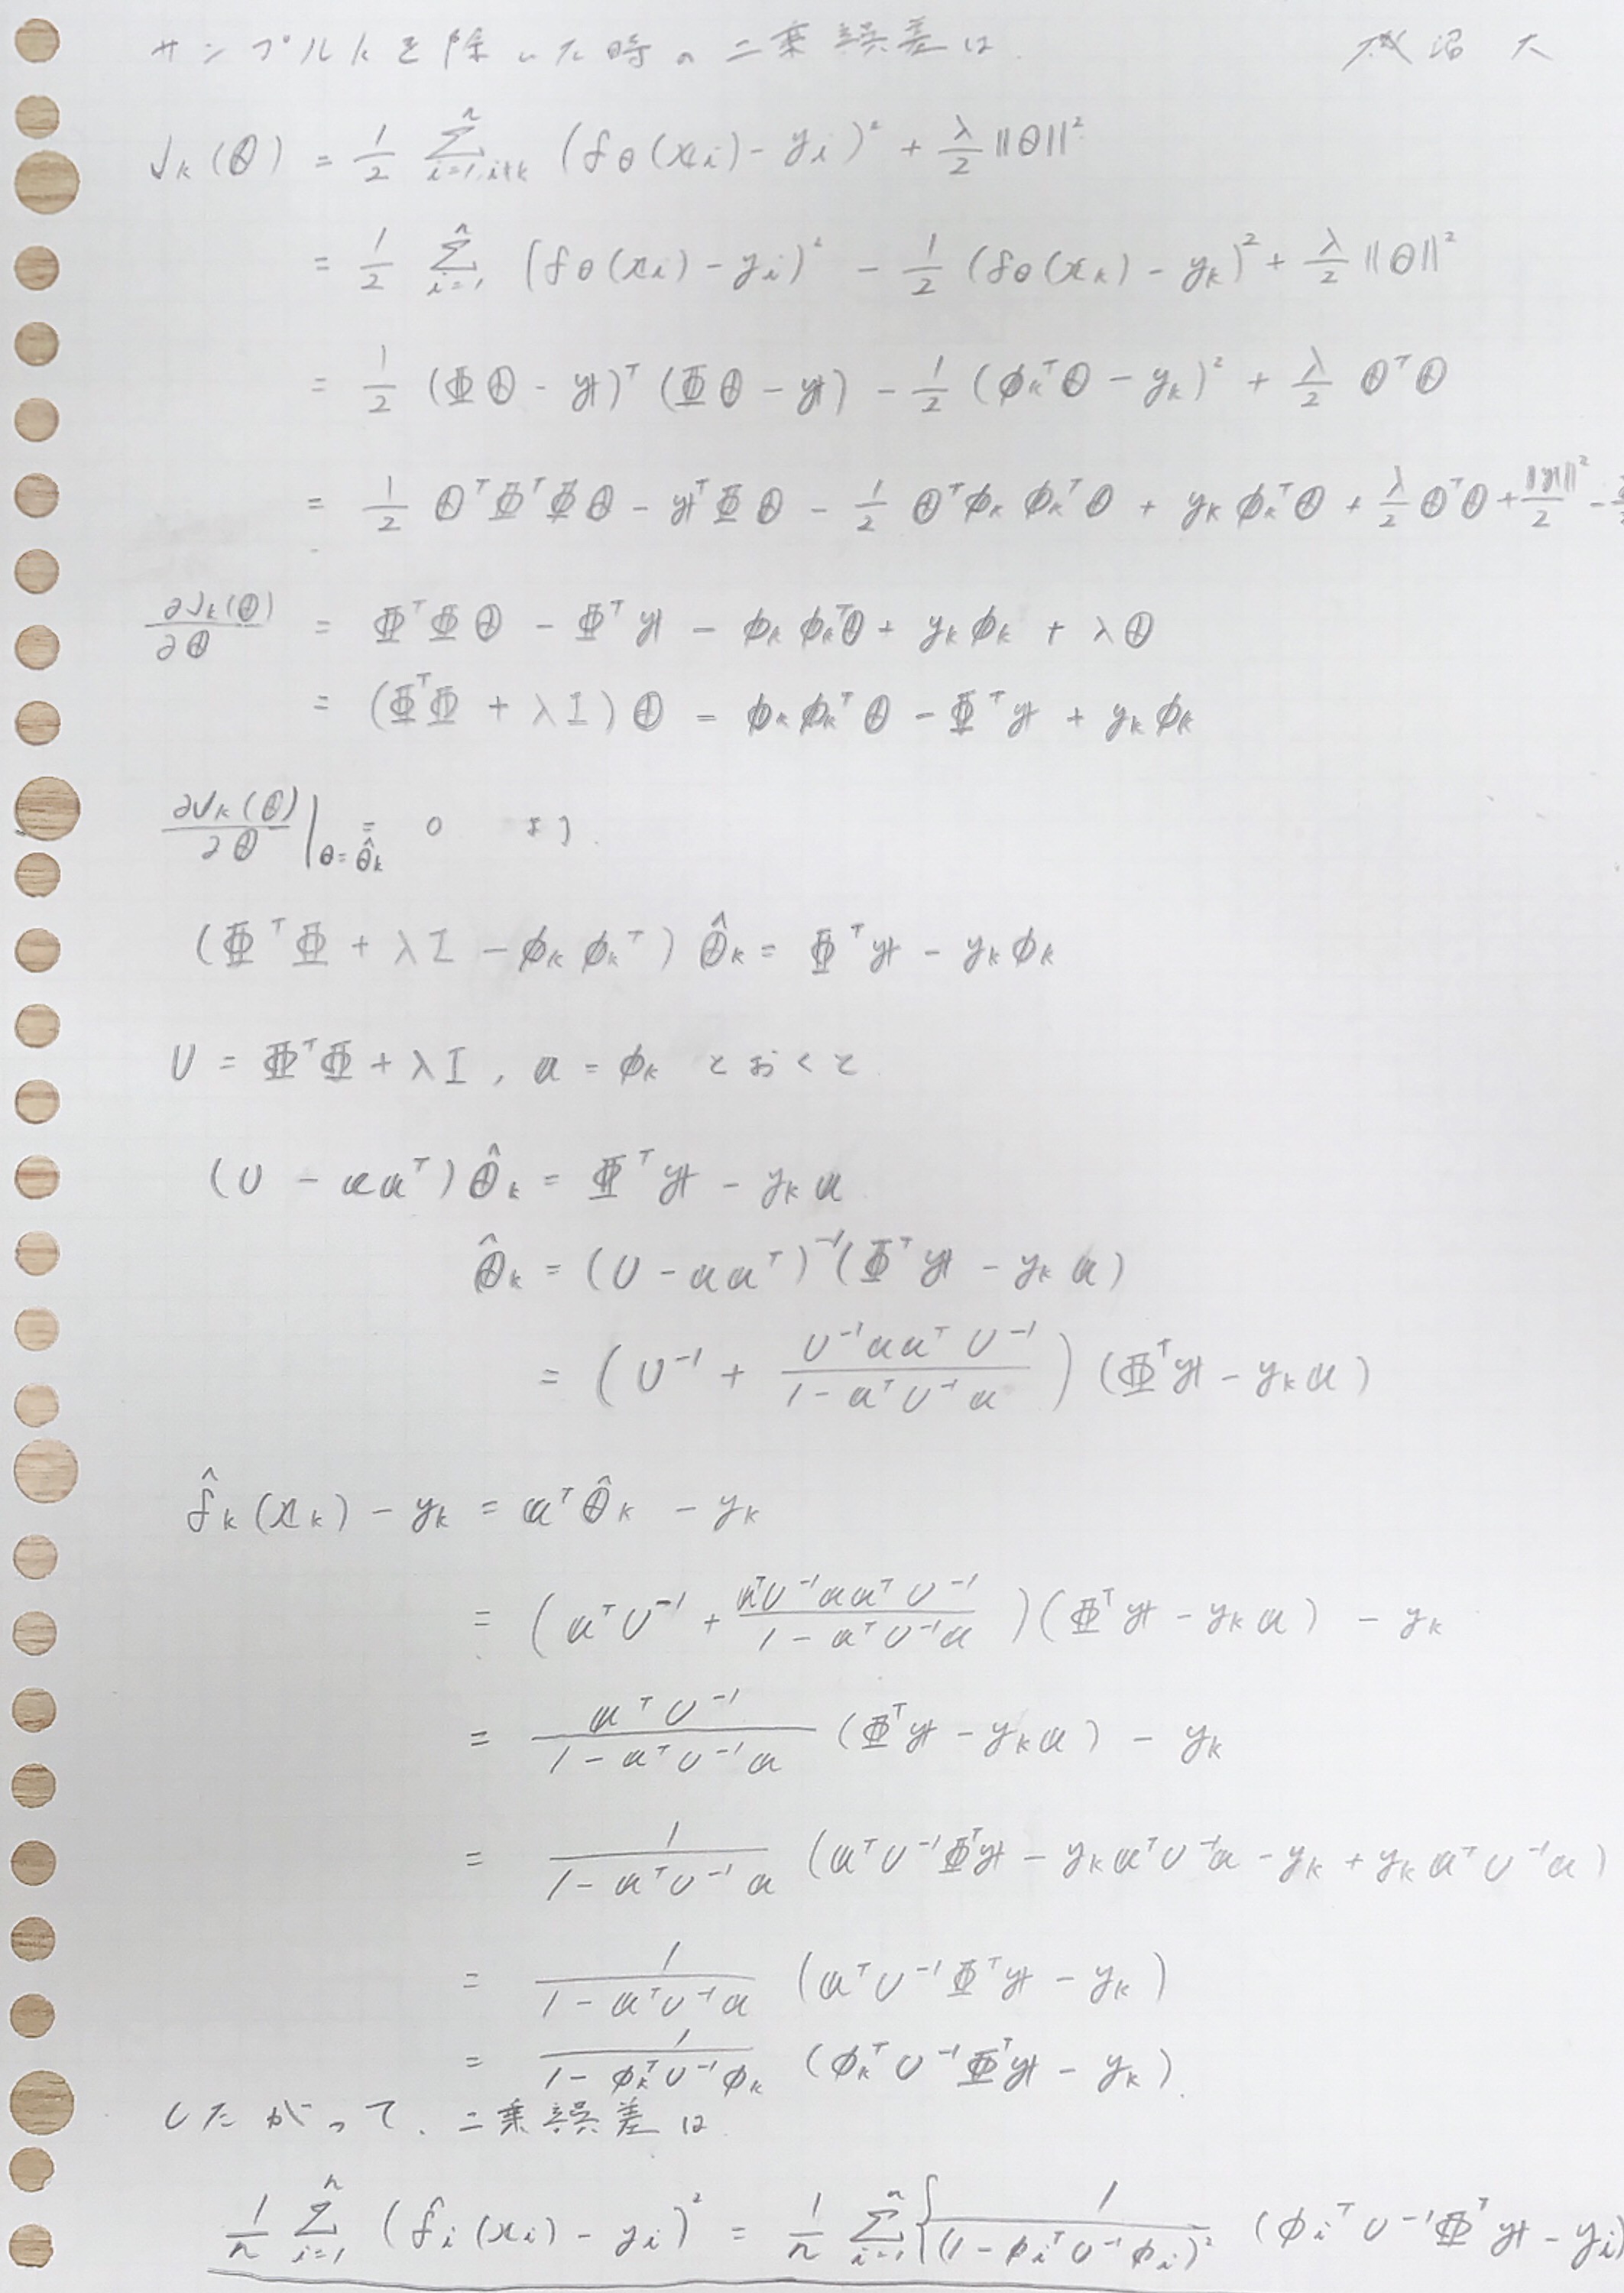 サンプルkを除いた時の二乗誤差は. 磯沼 大
J_k(θ) = 1/2 Σ_{i=1, i≠k}^{n} (f_θ(x_i) - y_i)² + λ/2 ||θ||²
= 1/2 Σ_{i=1}^{n} (f_θ(x_i) - y_i)² - 1/2 (f_θ(x_k) - y_k)² + λ/2 ||θ||²
= 1/2 (Φθ - y)^T (Φθ - y) - 1/2 (φ_k^T θ - y_k)² + λ/2 θ^T θ
= 1/2 θ^T Φ^T Φ θ - y^T Φ θ - 1/2 θ^T φ_k φ_k^T θ + y_k φ_k^T θ + λ/2 θ^T θ + ||y||²/2 -
∂J_k(θ)/∂θ = Φ^T Φ θ - Φ^T y - φ_k φ_k^T θ + y_k φ_k + λθ
= (Φ^T Φ + λI) θ - φ_k φ_k^T θ - Φ^T y + y_k φ_k
∂J_k(θ)/∂θ |_{θ=θ̂_k} = 0 より.
(Φ^T Φ + λI - φ_k φ_k^T) θ̂_k = Φ^T y - y_k φ_k
U = Φ^T Φ + λI, a = φ_k とおくと
(U - a a^T) θ̂_k = Φ^T y - y_k a
θ̂_k = (U - a a^T)^{-1} (Φ^T y - y_k a)
= (U^{-1} + U^{-1} a a^T U^{-1} / 1 - a^T U^{-1} a) (Φ^T y - y_k a)
f̂_k(x_k) - y_k = a^T θ̂_k - y_k
= (a^T U^{-1} + a^T U^{-1} a a^T U^{-1} / 1 - a^T U^{-1} a) (Φ^T y - y_k a) - y_k
= a^T U^{-1} / 1 - a^T U^{-1} a (Φ^T y - y_k a) - y_k
= 1 / 1 - a^T U^{-1} a (a^T U^{-1} Φ^T y - y_k a^T U^{-1} a - y_k + y_k a^T U^{-1} a)
= 1 / 1 - a^T U^{-1} a (a^T U^{-1} Φ^T y - y_k)
= 1 / 1 - φ_k^T U^{-1} φ_k (φ_k^T U^{-1} Φ^T y - y_k).
したがって、二乗誤差は
1/n Σ_{i=1}^{n} (f̂_i(x_i) - y_i)² = 1/n Σ_{i=1}^{n} { 1 / (1 - φ_i^T U^{-1} φ_i)² (φ_i^T U^{-1} Φ^T y - y_i)